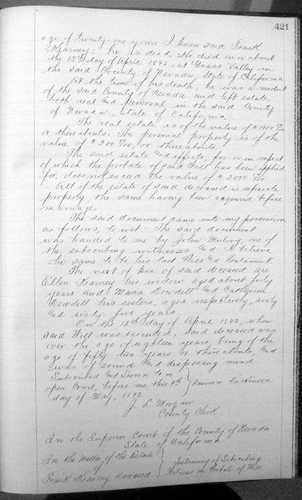 421
age of twenty one years I knew said Frank
Kearney: he is dead. He died on or about
the 15th day of April 1892, at Grass Valley in
the said County of Nevada, State of California
At the time of his death, he was a resident
of the said County of Nevada and left estate
both real and personal in the said County
of Nevada, State of California.
The real estate is of the value of
or thereabouts. The personal property is of the
value of $ 300 or thereabouts.
The said estate and effects for or in respect
of which the probate of said Will has been applied
for, does not exceed the value of
All of the estate of said deceased is separate
property the same having been acquired before
marriage.
The said document came into my possession
as follows, to wit: The said document
was handed to me by John one of
the subscribing witnesses and
the same to be his last Will and Testament
The next of kin of said deceased are
Ellen Kearney his widow aged about forty
years and
his sisters, aged respectively, sixty
and sixty five years
On the day of April 1892, when
said Will was executed, said deceased was
over the age of eighteen years, being of the
age of fifty two years or thereabouts, and
was of sound and disposing mind
Subscribed and Sworn to in
open Court, before me, this
day of May, 1892
County Clerk
In the Superior Court of the County of Nevada
State of California
In the Matter of the Estate
of
Frank Kearney deceased
Testimony of Subscribing
Witness on Probate of Will